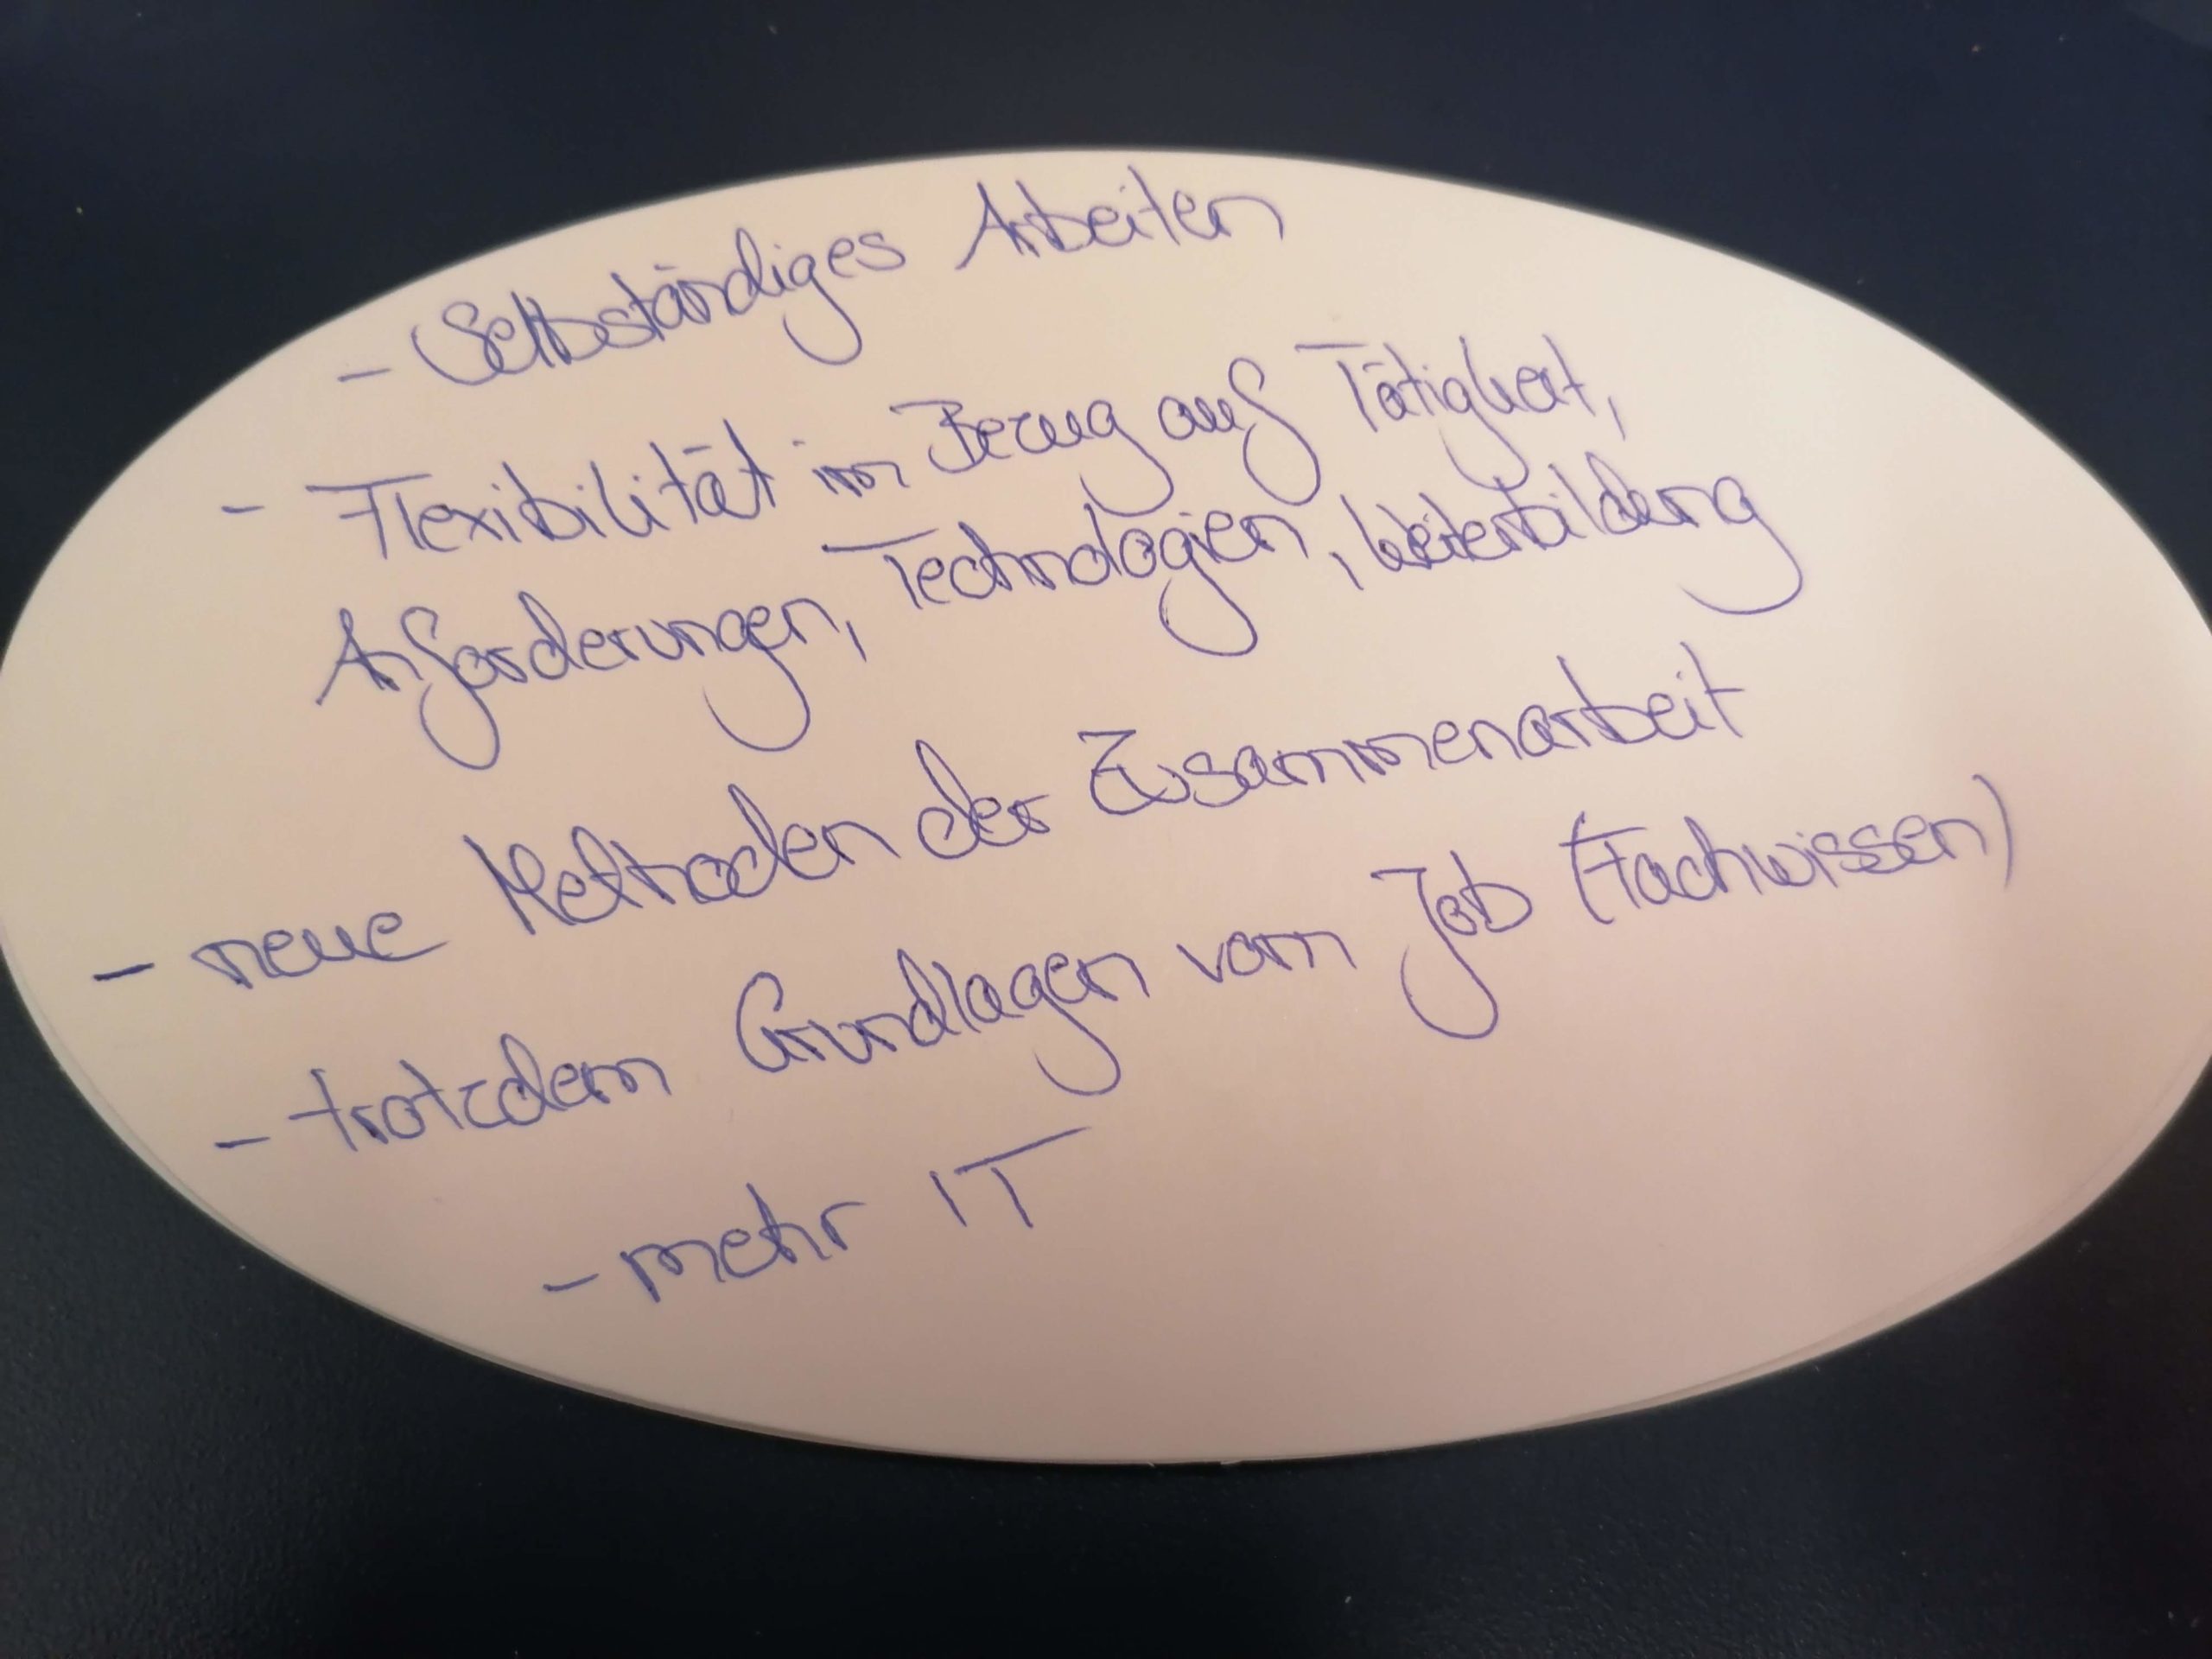 - Selbständiges Arbeiten
- Flexibilität in Bezug auf Tätigkeit,
Anforderungen, Technologien, Weiterbildung
- neue Methoden der Zusammenarbeit
- trotzdem Grundlagen vom Job (Fachwissen)
- mehr IT